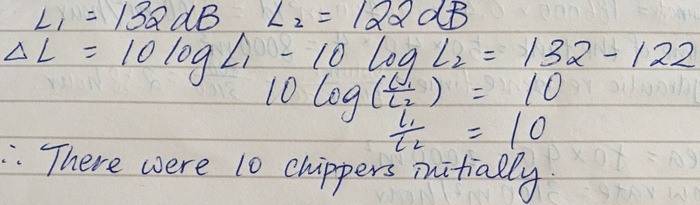 L₁ = 132 dB L₂ = 122 dB
ΔL = 10 log L₁ - 10 log L₂ = 132 - 122
10 log (L₁/L₂) = 10
L₁/L₂ = 10
∴ There were 10 chippers initially.